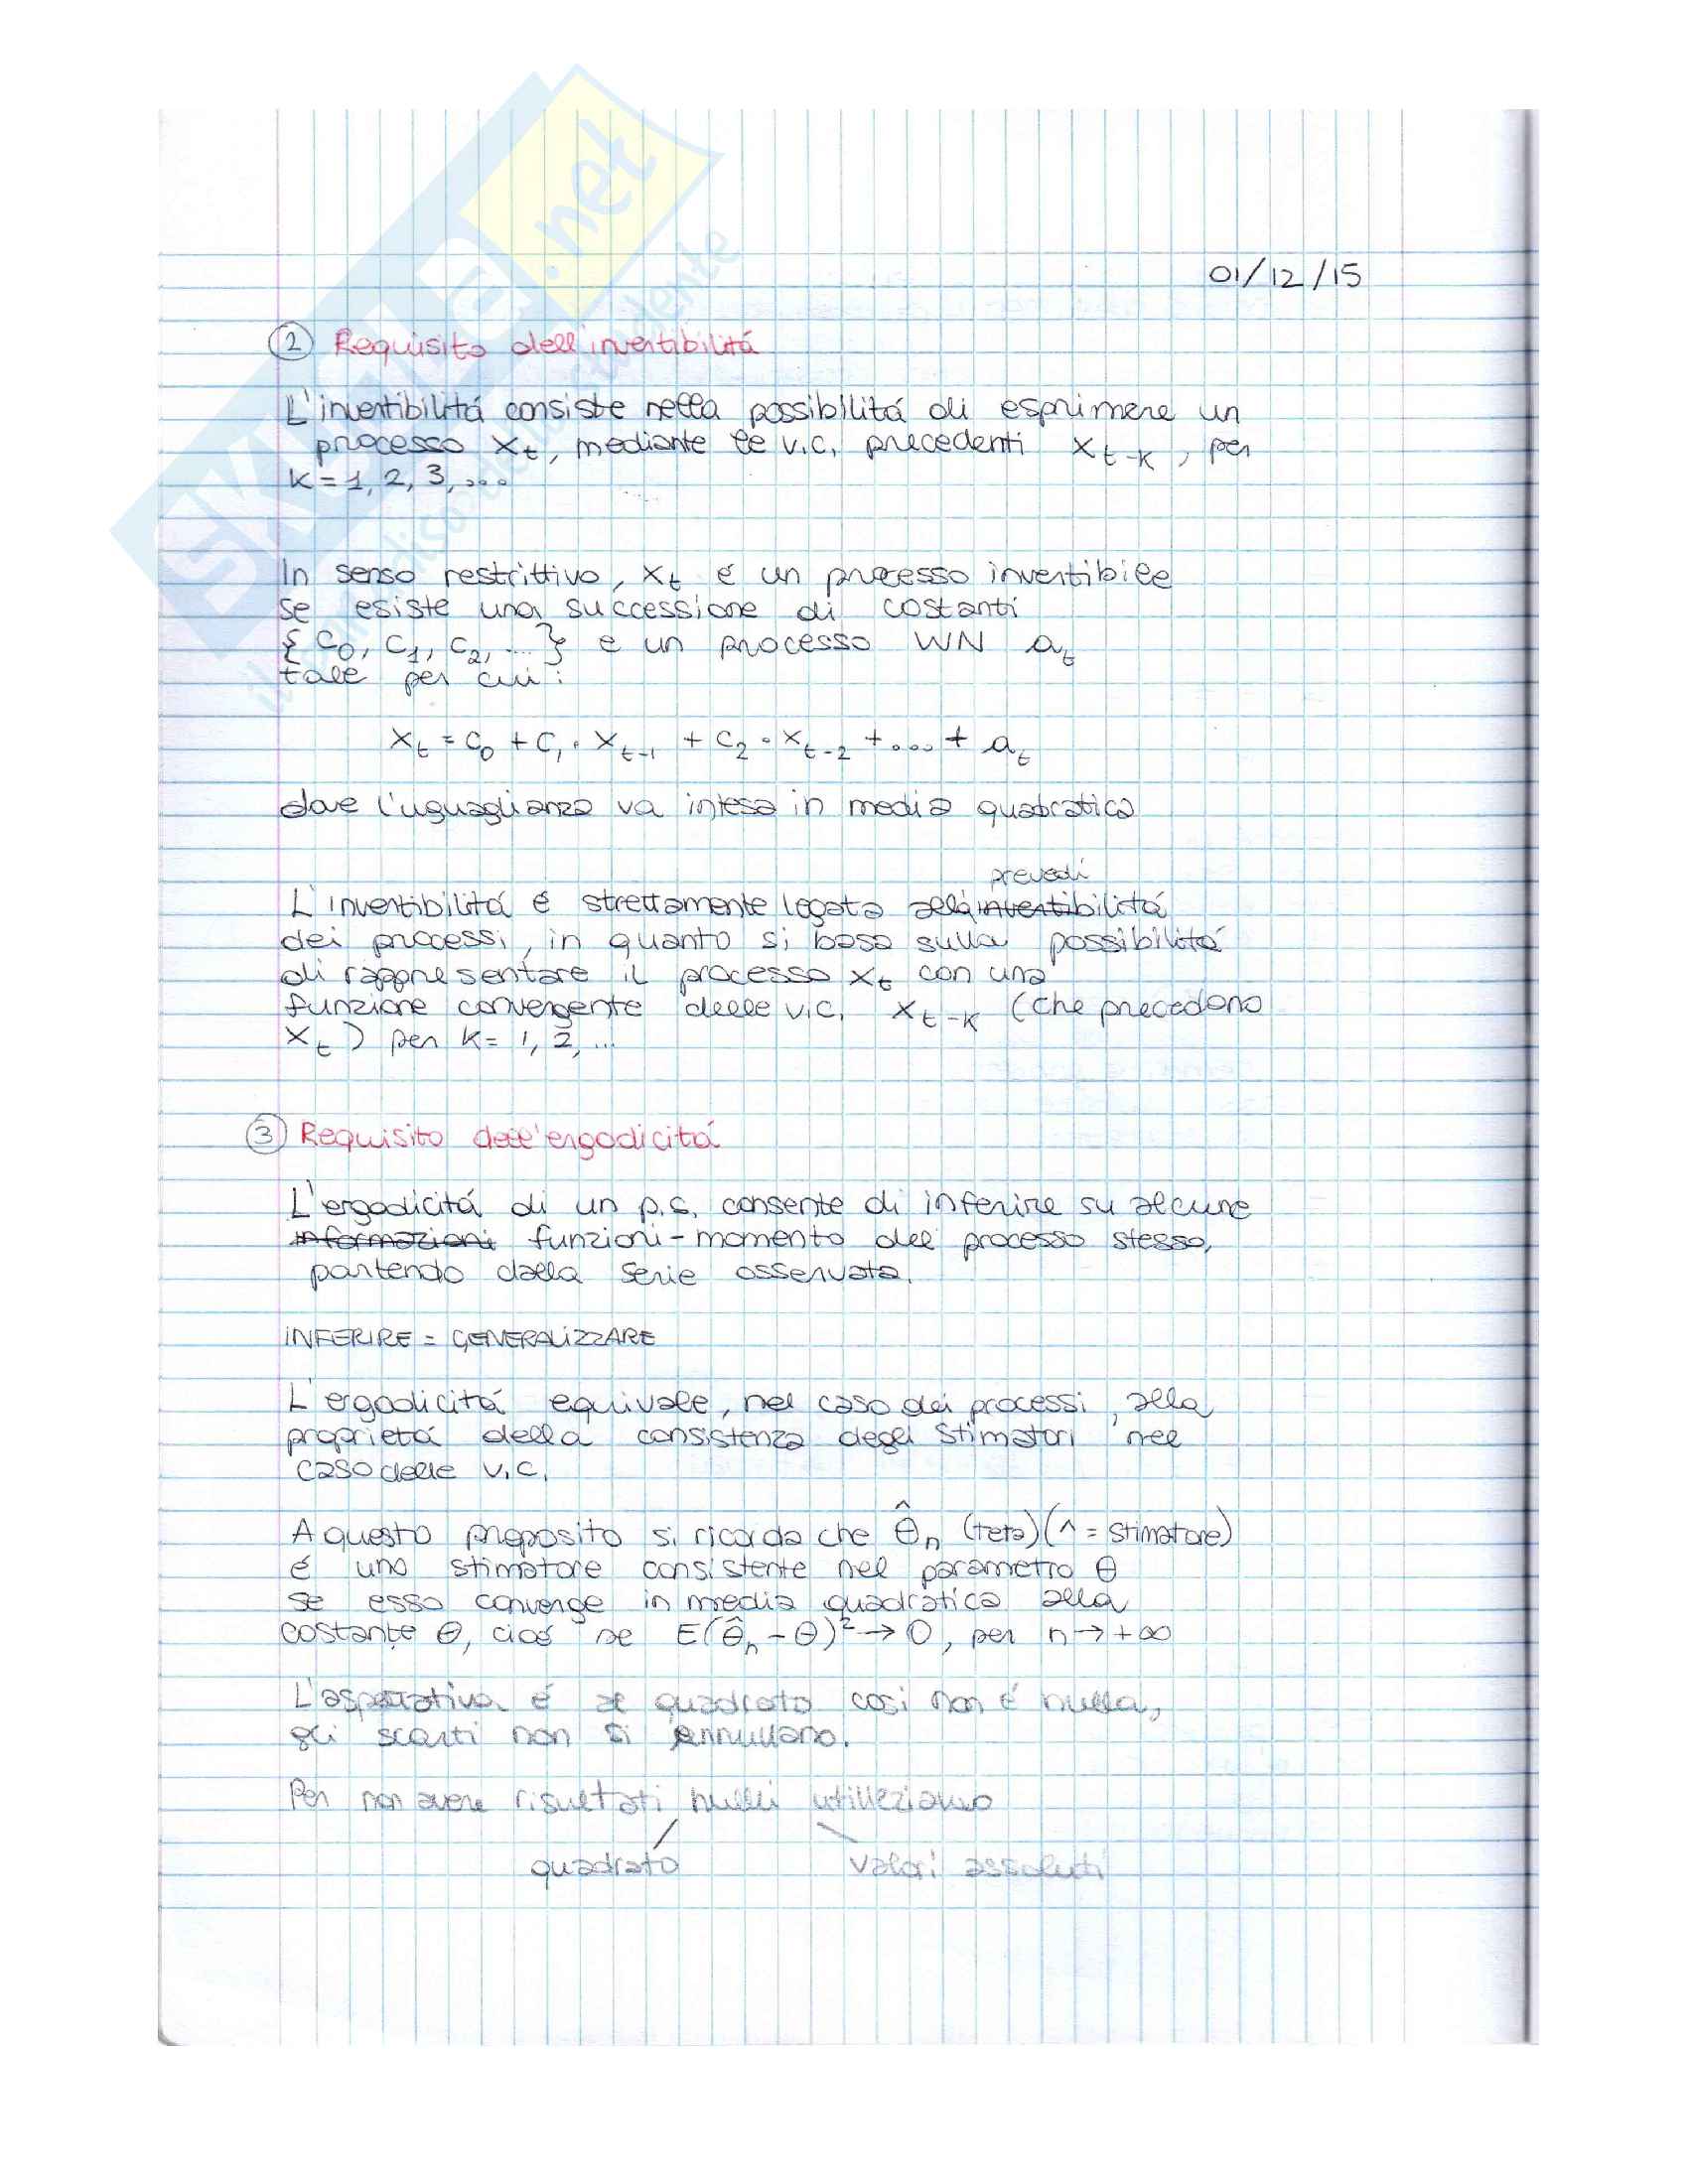 SKUOLA.net
il paradiso dello studente
01/12/15
② Requisito dell'invertibilitá
L'invertibilitá consiste nella possibilitá di esprimere un
processo Xt, mediante le v.c. precedenti Xt-k, per
k = 1, 2, 3, ...
In senso restrittivo, Xt é un processo invertibile
se esiste una successione di costanti
{C0, C1, C2, ...} e un processo WN at
tale per cui:
Xt = C0 + C1 · Xt-1 + C2 · Xt-2 + .... + at
dove l'uguaglianza va intesa in media quadratica
prevedi
L'invertibilitá é strettamente legata alla invertibilitá
dei processi, in quanto si basa sulla possibilitá
di rappresentare il processo Xt con una
funzione convergente delle v.c. Xt-k (che precedono
Xt) per k = 1, 2, ...
③ Requisito dell'ergodicitá
L'ergodicitá di un p.s. consente di inferire su alcune
informazioni funzioni-momento del processo stesso,
partendo dalla serie osservata.
INFERIRE = GENERALIZZARE
L'ergodicitá equivale, nel caso dei processi, alla
proprietá della consistenza degli stimatori nel
caso delle v.c.
A questo proposito si ricorda che θ̂n (teta) (^ = stimatore)
é uno stimatore consistente nel parametro θ
se esso converge in media quadratica alla
costante θ, cioé se E(θ̂n - θ)² → 0, per n → +∞
L'aspettativa é al quadrato cosi non é nulla,
gli scarti non si annullano.
Per non avere risultati nulli utilizziamo
quadrato valori assoluti